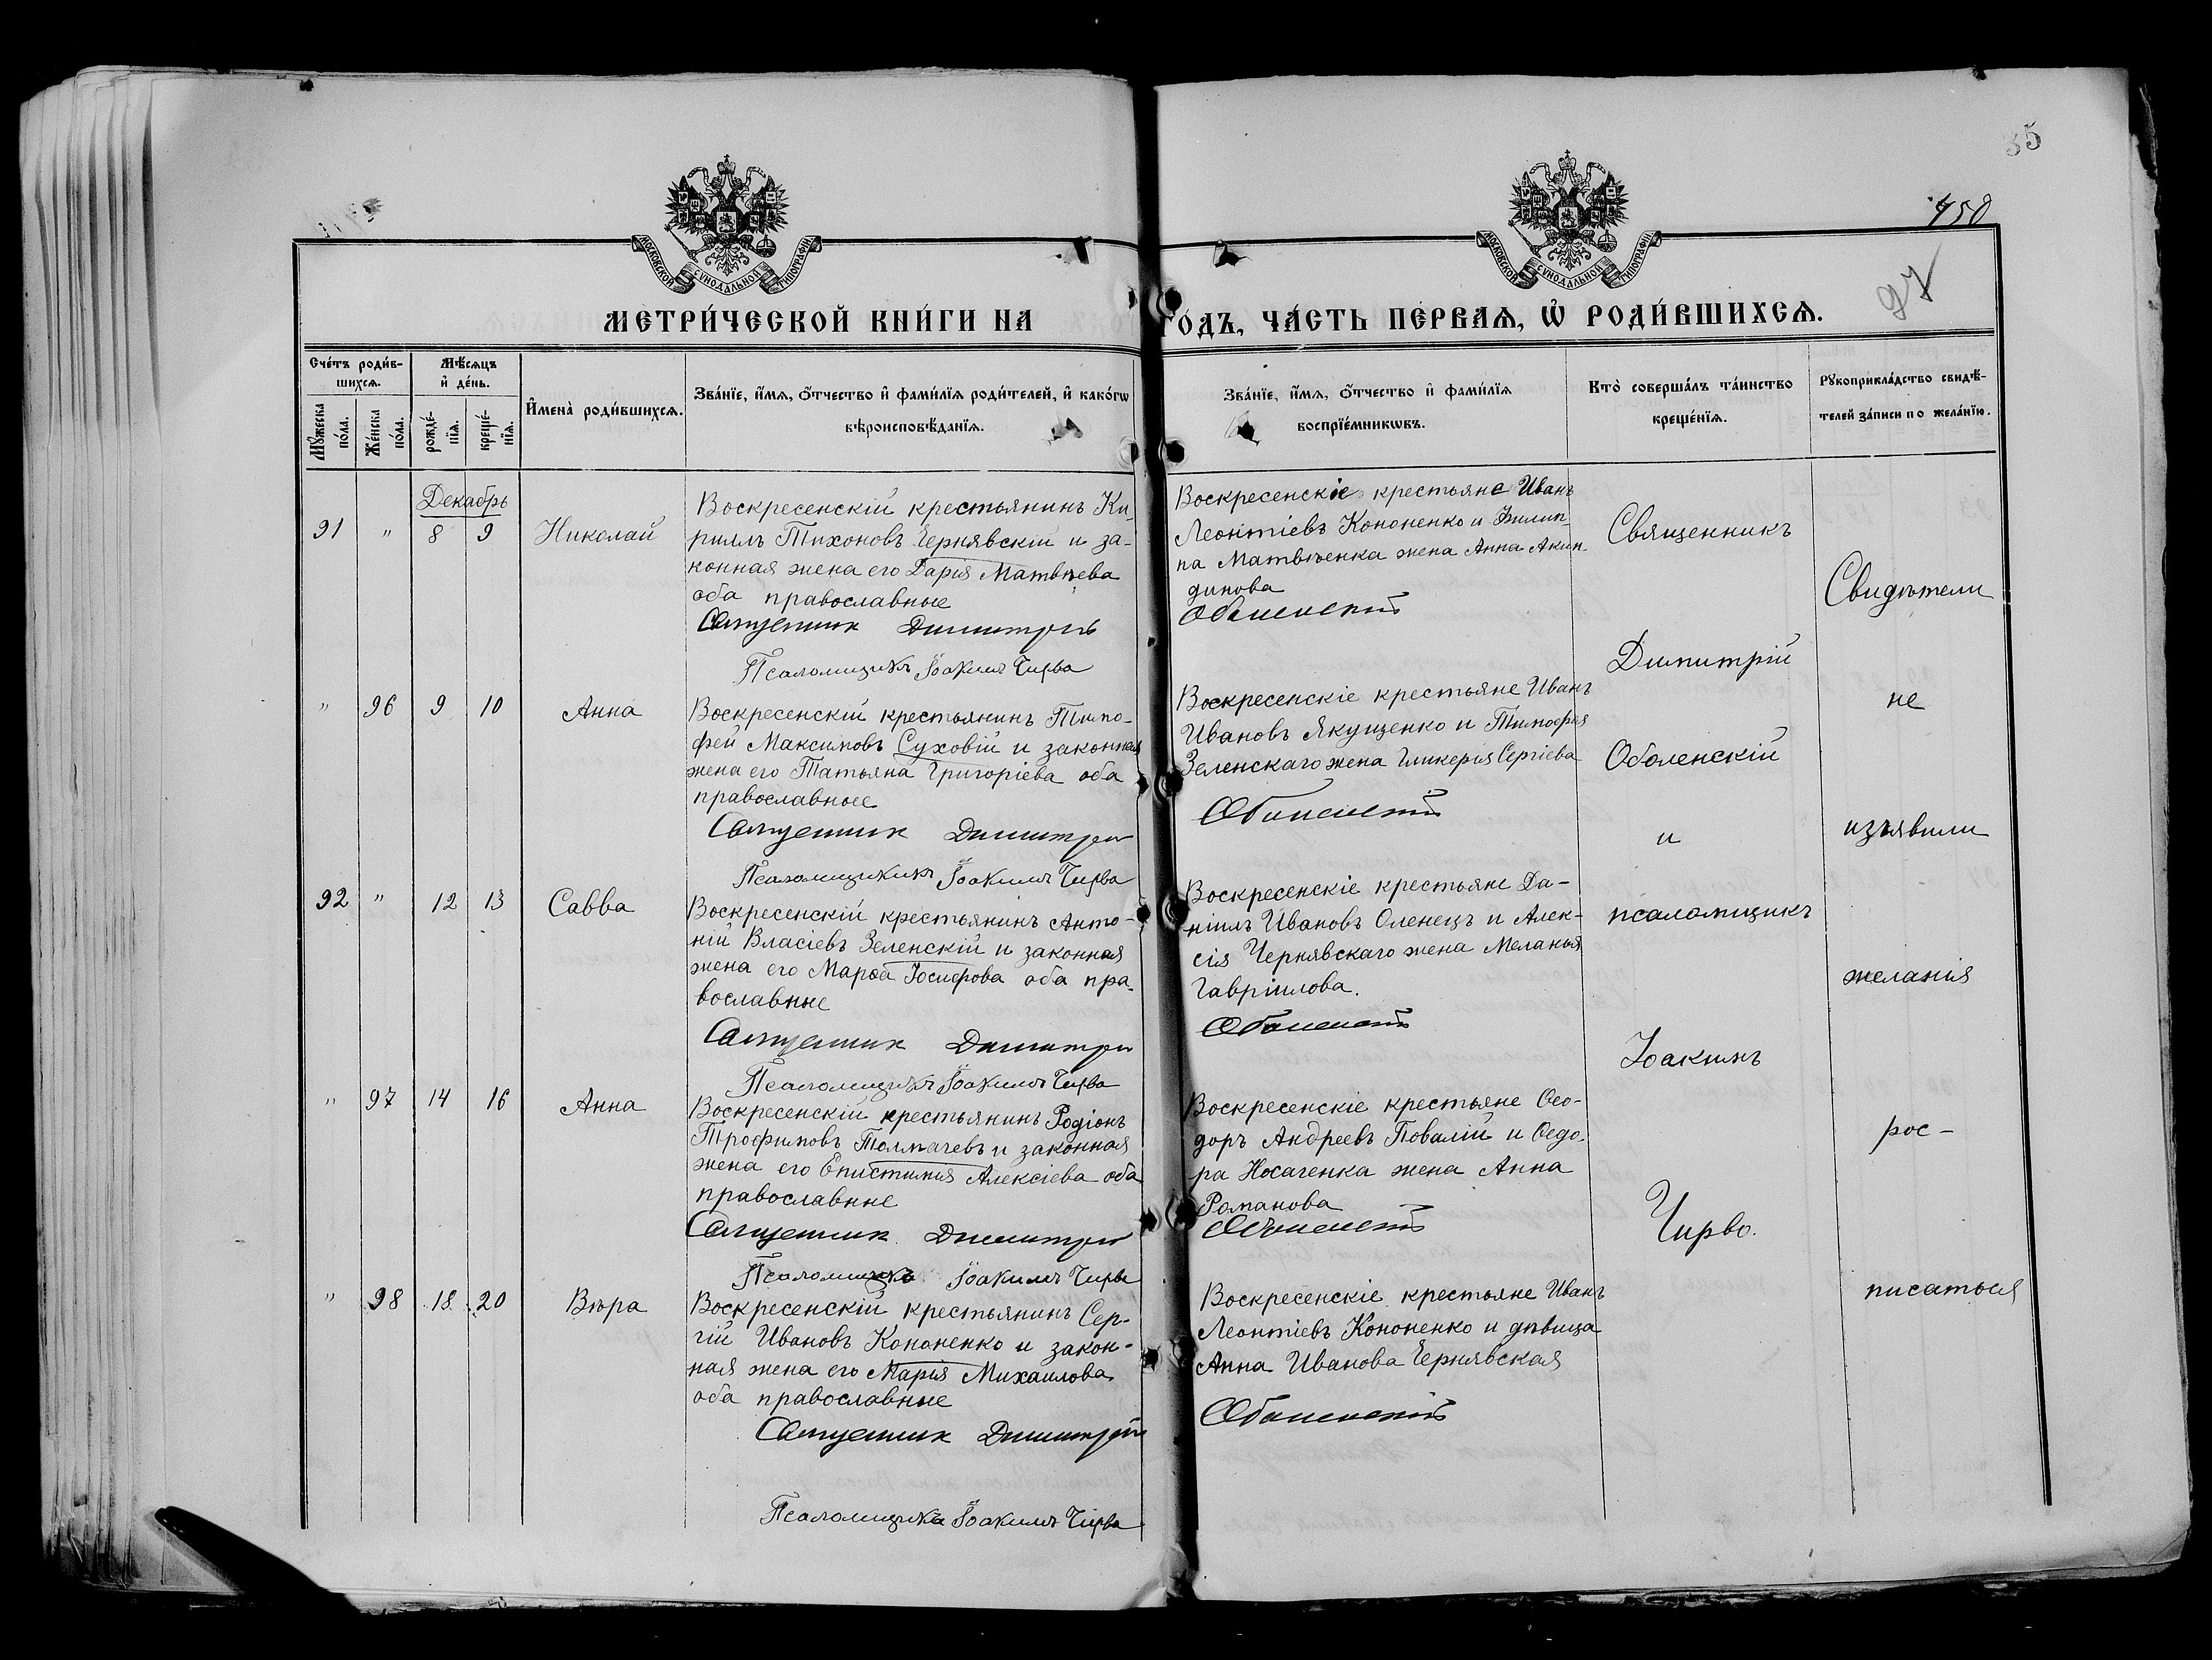 35
450
97
МОСКОВСКОЙ СѴНОДАЛЬНОЙ ТИПОГРАФІИ
МОСКОВСКОЙ СѴНОДАЛЬНОЙ ТИПОГРАФІИ
МЕТРИ́ЧЕСКОЙ КНИ́ГИ НА
ГО́ДЪ, ЧА́СТЬ ПЕ́РВАѦ, Ѽ РОДИ́ВШИХСѦ.
Сче́тъ роди́в-
шихсѧ.
Мꙋ́жеска
по́ла.
Же́нска
по́ла.
Мѣ́сѧцъ
и҆ де́нь.
рожде́-
нїѧ.
креще́-
нїѧ.
И҆мена̀ роди́вшихсѧ.
Зва́нїе, и҆́мѧ, ѻ҆́тчество и҆ фами́лїѧ роди́телей, и҆ како́гѡ
вѣроисповѣ́данїѧ.
Зва́нїе, и҆́мѧ, ѻ҆́тчество и҆ фами́лїѧ
воспрїе́мникѡвъ.
Кто̀ соверша́лъ та́инство
креще́нїѧ.
Рꙋкоприкла́дство свидѣ́-
телей за́писи по жела́нїю.
Декабрь
91 " 8 9 Николай
Воскресенскій крестьянинъ Ки-
риллъ Тихоновъ Чернявскій и за-
конная жена его Дарія Матвѣева
оба православные
Священник Димитрій
Псаломщикъ Іоакимъ Чирва
Воскресенскіе крестьяне Иванъ
Леонтіевъ Кононенко и Филип-
па Матвѣенка жена Анна Акин-
динова
Оболенскій
" 96 9 10 Анна
Воскресенскій крестьянинъ Тимо-
фей Максимовъ Суховій и законная
жена его Татьяна Григоріева оба
православные
Священник Димитрій
Псаломщикъ Іоакимъ Чирва
Воскресенскіе крестьяне Иванъ
Ивановъ Якущенко и Тимофея
Зеленскаго жена Гликерія Сергіева
Оболенскій
92 " 12 13 Савва
Воскресенскій крестьянинъ Анто-
ній Власіевъ Зеленскій и законная
жена его Марѳа Іосифова оба пра-
вославные
Священник Димитрій
Псаломщикъ Іоакимъ Чирва
Воскресенскіе крестьяне Да-
ніилъ Ивановъ Оленецъ и Алек-
сія Чернявскаго жена Меланья
Гавріилова.
Оболенскій
" 97 14 16 Анна
Воскресенскій крестьянинъ Родіонъ
Трофимовъ Толмачевъ и законная
жена его Епистимія Алексіева оба
православные
Священник Димитрій
Псаломщикъ Іоакимъ Чирва
Воскресенскіе крестьяне Ѳео-
доръ Андреевъ Повалій и Ѳедо-
ра Носаченка жена Анна
Романова
Оболенскій
" 98 18 20 Вѣра
Воскресенскій крестьянинъ Сер-
гій Ивановъ Кононенко и закон-
ная жена его Марія Михаилова
оба православные
Священник Димитрій
Псаломщикъ Іоакимъ Чирва
Воскресенскіе крестьяне Иванъ
Леонтіевъ Кононенко и дѣвица
Анна Иванова Чернявская
Оболенскій
Священникъ
Димитрій
Оболенскій
и
псаломщикъ
Іоакимъ
Чирва.
Свидѣтели
не
изъявили
желанія
рос-
писаться